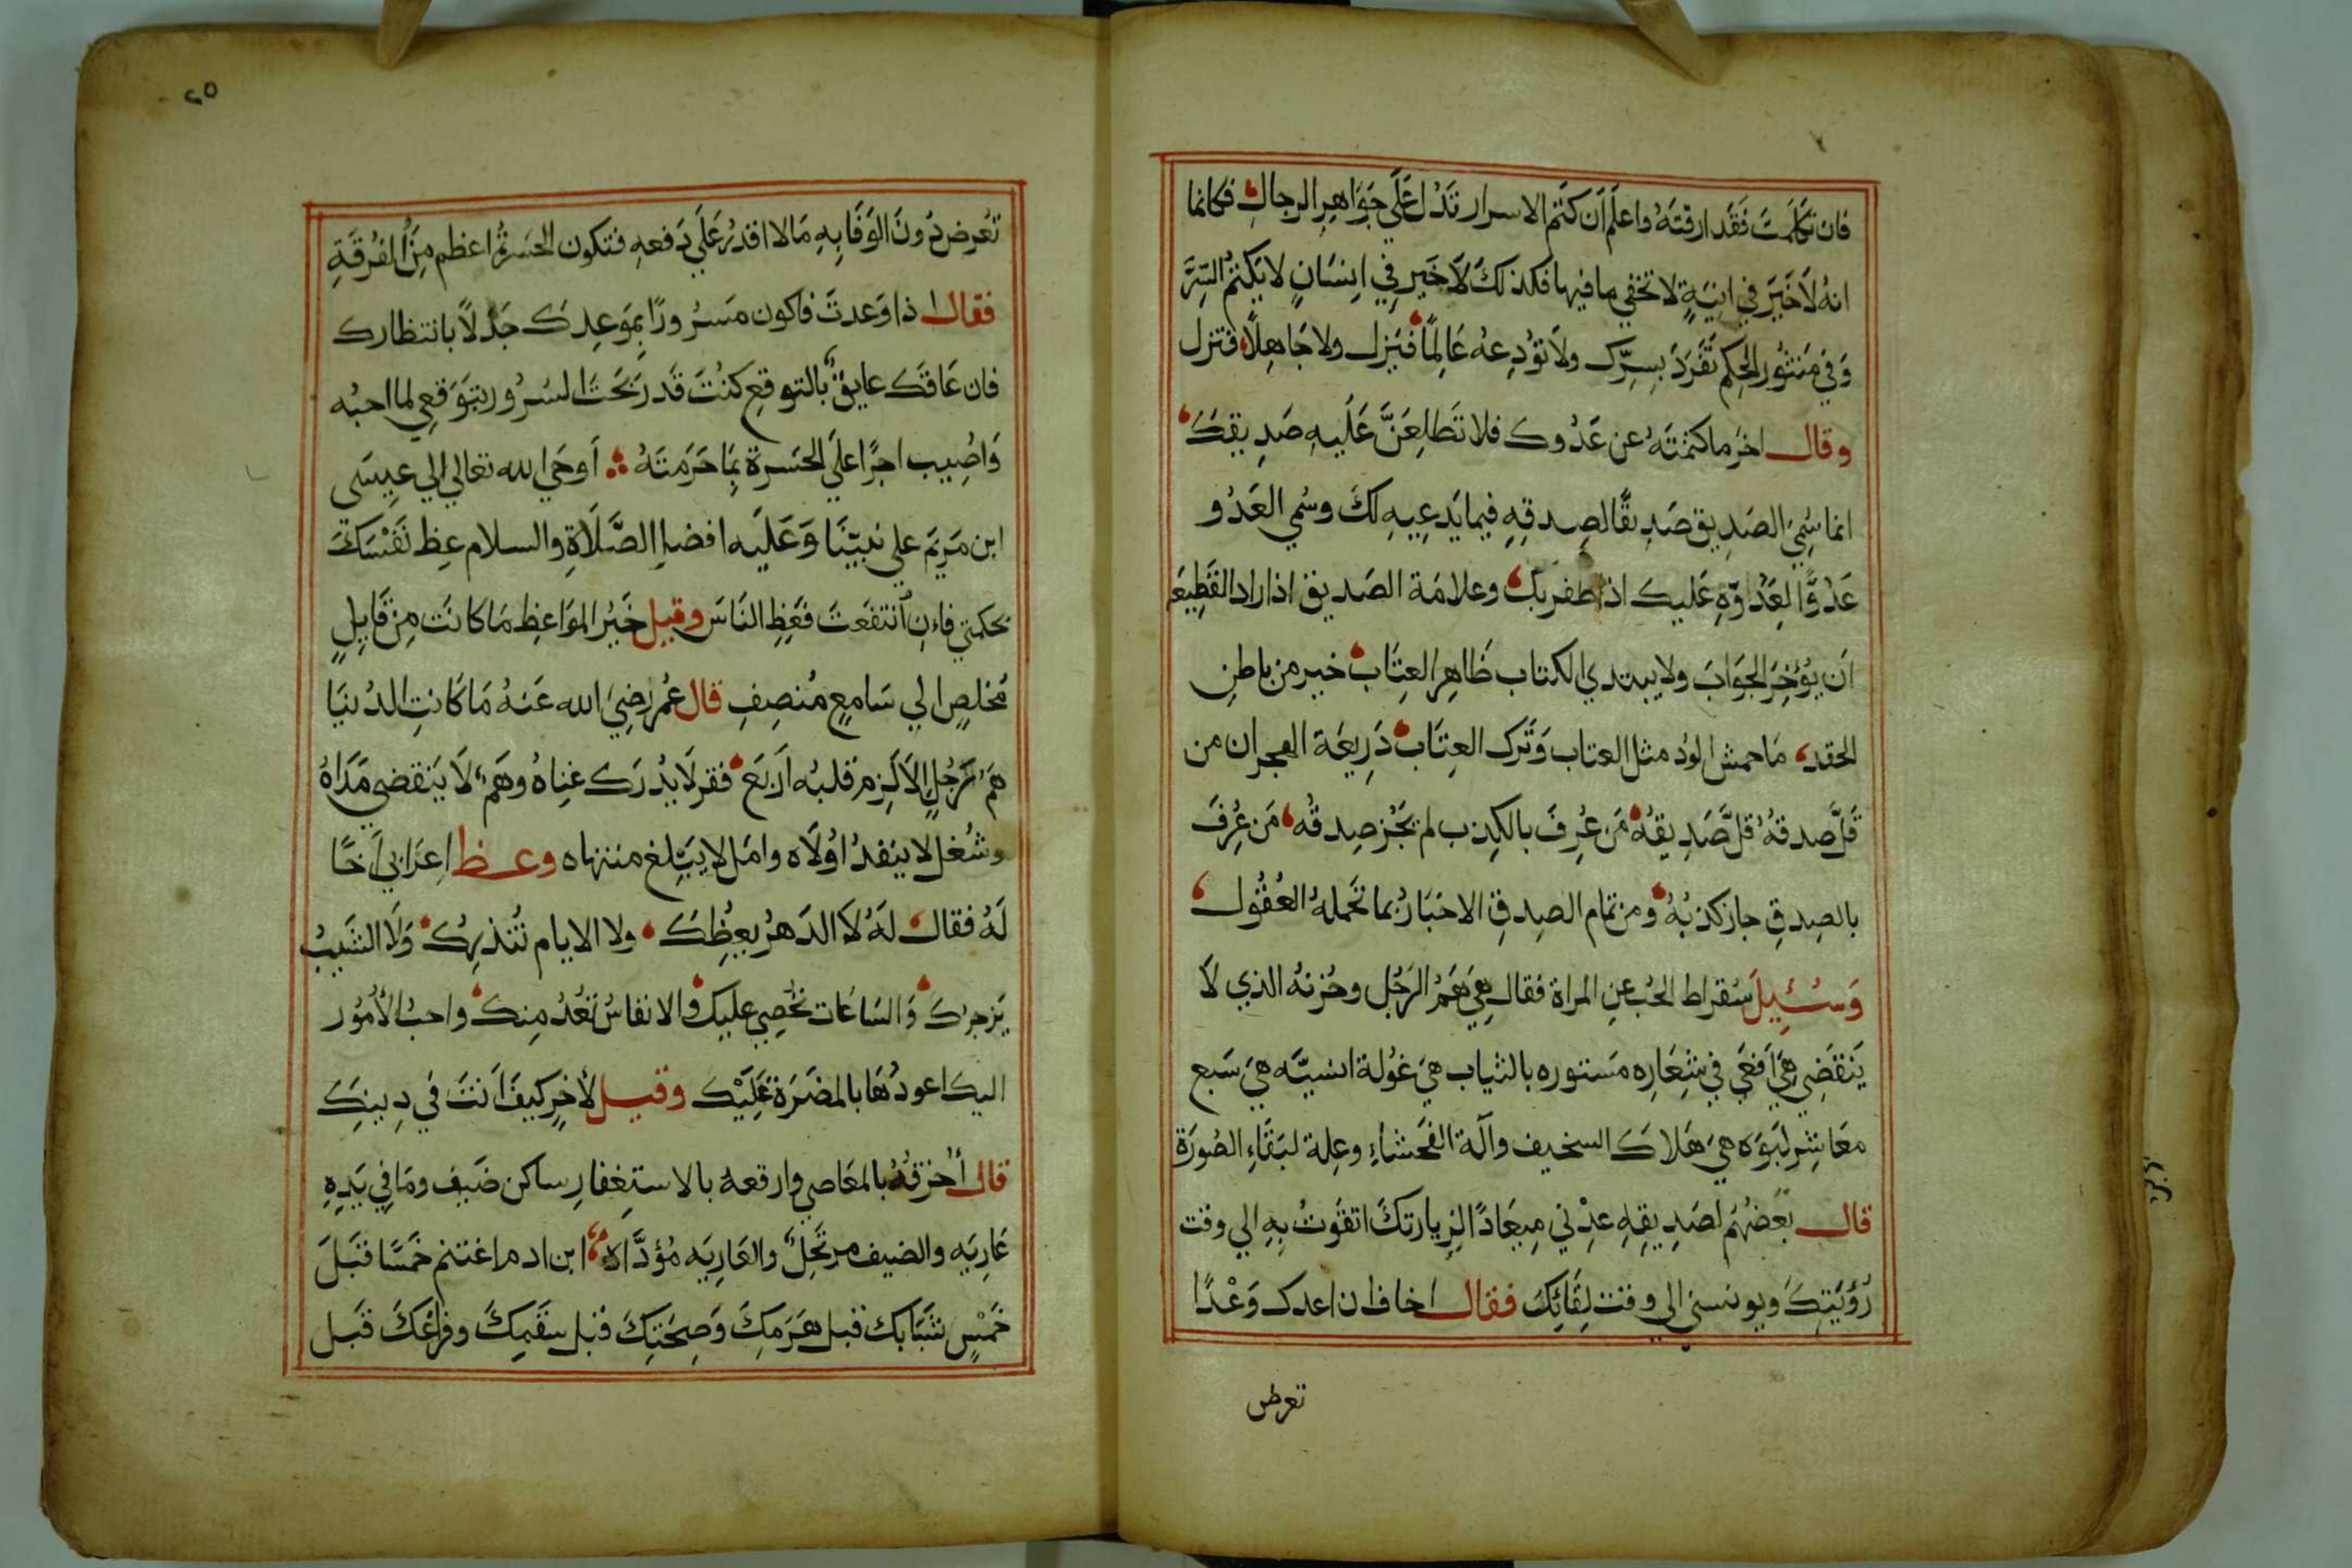 فان تكلمت فَقَد ارقتَهُ واعلَم اَن كتم الاسرار تَدُل عَلَي جَوَاهِرِ الرجال فكانما
انهُ لَا خَيَرَ في انِيَةٍ لا تخفي ما فيها فكذلكَ لَا خَير فِي اِنسَانٍ لا يَكتمُ السِّرَّ
وَفي مَنثُور الحِكم تَفَردَ بِسِرِّك ولَا تؤدِعهُ عَالِمًا فَيَزل ولا جَاهِلًا فتزل
وقال اخر ما كتمتَهُ عن عَدُوك فلا تَطلِعَنَّ عَلَيهِ صَدِيقِكَ
انما سُمِيَ الصَدِيق صَدِيقًا لصِدقِهِ فيما يَدعِيهِ لكَ وسُمي العَدُو
عَدُوًّا لِعَدُاوّةِ عَليك اذا ظفر بك وعلامَة الصَديق اذا اراد القَطِيعَه
اَن يُؤخِرَ الجَوَابَ ولا يبتدي الكتاب ظَاهِر العِتَاب خير من باطن
الحقد مَا حمش الوُد مثل العتاب وَتَرك العِتَاب ذَرِيعَة الهجران من
قَلَّ صدقهُ قلَّ صَدِيقُهُ مَن عُرِفَ بالكِذب لم يَجُز صِدقُه مَن عُرِفَ
بالصِدقِ جاز كذبُهُ ومن تمام الصِدقِ الاخبَار بما تَحملهُ العُقُول
وَسُئِيلَ سُقراط الحُب عنِ المراة فقال هِيَ هَمُ الرَجُل وحُزنهُ الذي لَا
يَنقَضِي هِيَ اَفعَي فِي شِعَارِه مَستوره بالثياب هيَ غُولة انسيَّه هيَ سَبع
مَعَاشِر لبَوَه هيَ هَلاكَ السخيف وآلَة الفَحشاءِ وعِلة لبَقَاءِ الصُورَة
قال بَعضهُم لصَدِيقِهِ عِدْني مِيعَادًا لزِيارتكَ اتقَوتُ بِهِ الي وقت
رُؤيَتِكَ ويونسني الي وقت لِقَائِكَ فقال اخاف ان اعدك وَعْدًا
تعرض
٢٥
تَعرض دُونَ الوَفَا بِهِ مَالا اقدرُ عَلَي دَفعهِ فتكون الحَسَرةُ اعظم مِنَ الفُرقَةِ
فقال اذا وَعدتَ فاكون مَسرُورًا بِمَوعِدكَ جَذلًا بانتظارك
فان عَاقَكَ عايقٌ بالتوقعِ كنُتَ قَد رَبَحَتَ السُرُور بتَوَقعِي لما احبُه
وَاصِيب اجرًا علَي الحَسرة بِمَا حَرَمتَهُ اَوحَي الله تعالي الي عِيسَي
ابن مَريَم علي نَبيّنَا وَعَلَيه افضل الصَّلَاةِ والسلام عِظ نَفْسَكَ
بحكمتي فاءن انتفعَتَ فَعَظِ النَاسَ وقيل خَيُر المَوَاعِظِ مَا كانَت مِن قَايِلٍ
مُخلصٍ الي سَامعٍ مُنصِفٍ قال عُمر رَضِيَ الله عَنهُ مَا كَانتِ الدُنيَا
هَم رَجُلٍ الاَ لَزِم قلبُه اَربَع فقر لَا يُدرَك غِناهُ وهَمٌ لَا يَنقضي مَدَاهُ
وشُغل لا ينفدُ اوُلَاه وامَل لا يَبلغ منتهاه وعظ اِعرَابي اَخًا
لَهُ فقال لهُ لَا الدَهرُ يعِظُكَ ولا الايام تُنذِرُكَ وَلَا الشَيبُ
يَزجرُك وَالسَاعَات تحُصِي عليك والانفاسُ تَعُدُ مِنك واحبُ الأُمُور
اليك اعودُهَا بالمضرَة عَلَيْك وقيل لأخرِ كيفَ اَنتَ فَي دِينِكَ
قال اُخزقهُ بالمَعَاصي وارقعهُ بالاستِغفارِ ساكن ضَيف ومَا في يَدِهِ
عَارِيَه والضيف مرتَحِلٌ والعَارِيَه مُؤدَّاه ابن ادم اغتنم خَمسًا قَبَلَ
خَمْسٍ شَبَابك قبل هَرَمِكَ وَصِحَتِكَ قبْل سَقَمِكَ وفَراغكَ قَبل